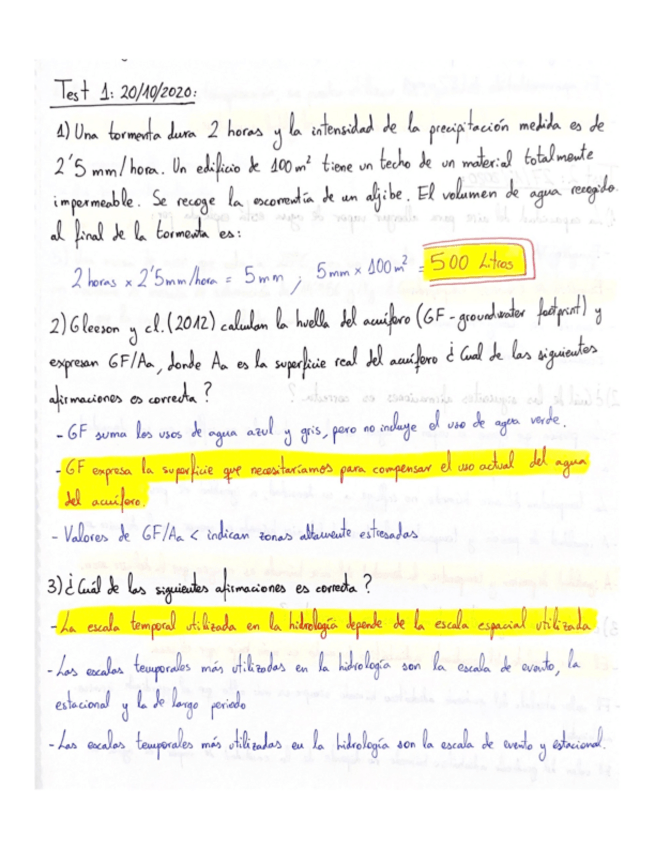 Test 1: 20/10/2020:
1) Una tormenta dura 2 horas y la intensidad de la precipitación medida es de
2'5 mm/hora. Un edificio de 100 m² tiene un techo de un material totalmente
impermeable. Se recoge la escorrentía de un aljibe. El volumen de agua recogido
al final de la tormenta es:
2 horas x 2'5mm/hora = 5mm ; 5mm x 100m² = 500 Litros
2) Gleeson y cl. (2012) calculan la huella del acuífero (GF - groundwater footprint) y
expresan GF/Aa, donde Aa es la superficie real del acuífero ¿Cual de las siguientes
afirmaciones es correcta?
- GF suma los usos de agua azul y gris, pero no incluye el uso de agua verde.
- GF expresa la superficie que necesitaríamos para compensar el uso actual del agua
del acuífero.
- Valores de GF/Aa < indican zonas altamente estresadas
3) ¿Cuál de las siguientes afirmaciones es correcta?
- La escala temporal utilizada en la hidrología depende de la escala espacial utilizada
- Las escalas temporales más utilizadas en la hidrología son la escala de evento, la
estacional y la de largo periodo
- Las escalas temporales más utilizadas en la hidrología son la escala de evento y estacional.